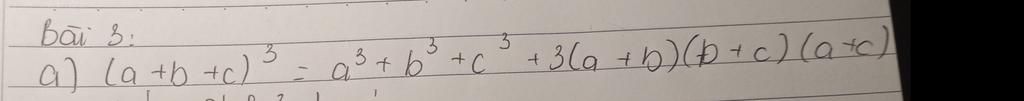 Bài 3:
a) (a+b+c)³ = a³+b³+c³+3(a+b)(b+c)(a+c)